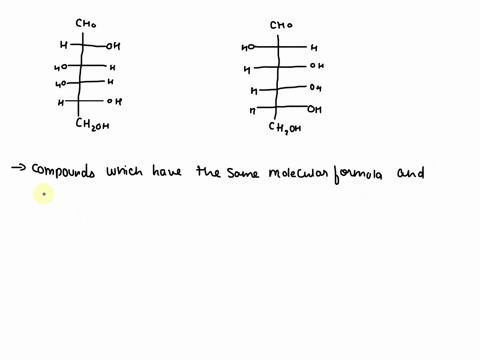 CHO CHO
H OH HO H
HO H H OH
HO H H OH
H OH H OH
CH2OH CH2OH
→ compounds which have the same molecular formula and